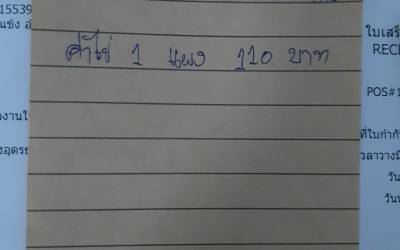 15539
แข็ง อ
ใบเสร็
RECE
ค่าไข่ 1 แผง 110 บาท
POS#1
งานใ
ที่ใบกำกั
งอุดรธ
เวลาวางมิ
วัน
วันท